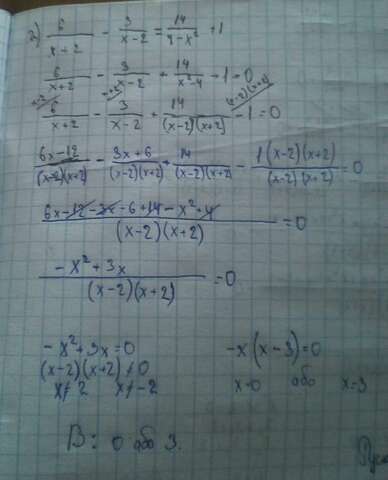 2) 6/(x+2) - 3/(x-2) = 14/(4-x²) + 1
6/(x+2) - 3/(x-2) + 14/(x²-4) - 1 = 0
x-2 x+2 (x-2)(x+2)
6/(x+2) - 3/(x-2) + 14/((x-2)(x+2)) - 1 = 0
(6x-12)/((x-2)(x+2)) - (3x+6)/((x-2)(x+2)) + 14/((x-2)(x+2)) - 1(x-2)(x+2)/((x-2)(x+2)) = 0
(6x-12-3x-6+14-x²+4)/((x-2)(x+2)) = 0
(-x²+3x)/((x-2)(x+2)) = 0
-x²+3x=0
(x-2)(x+2)≠0
x≠2 x≠-2
-x(x-3)=0
x=0 або x=3
В: 0 або 3.